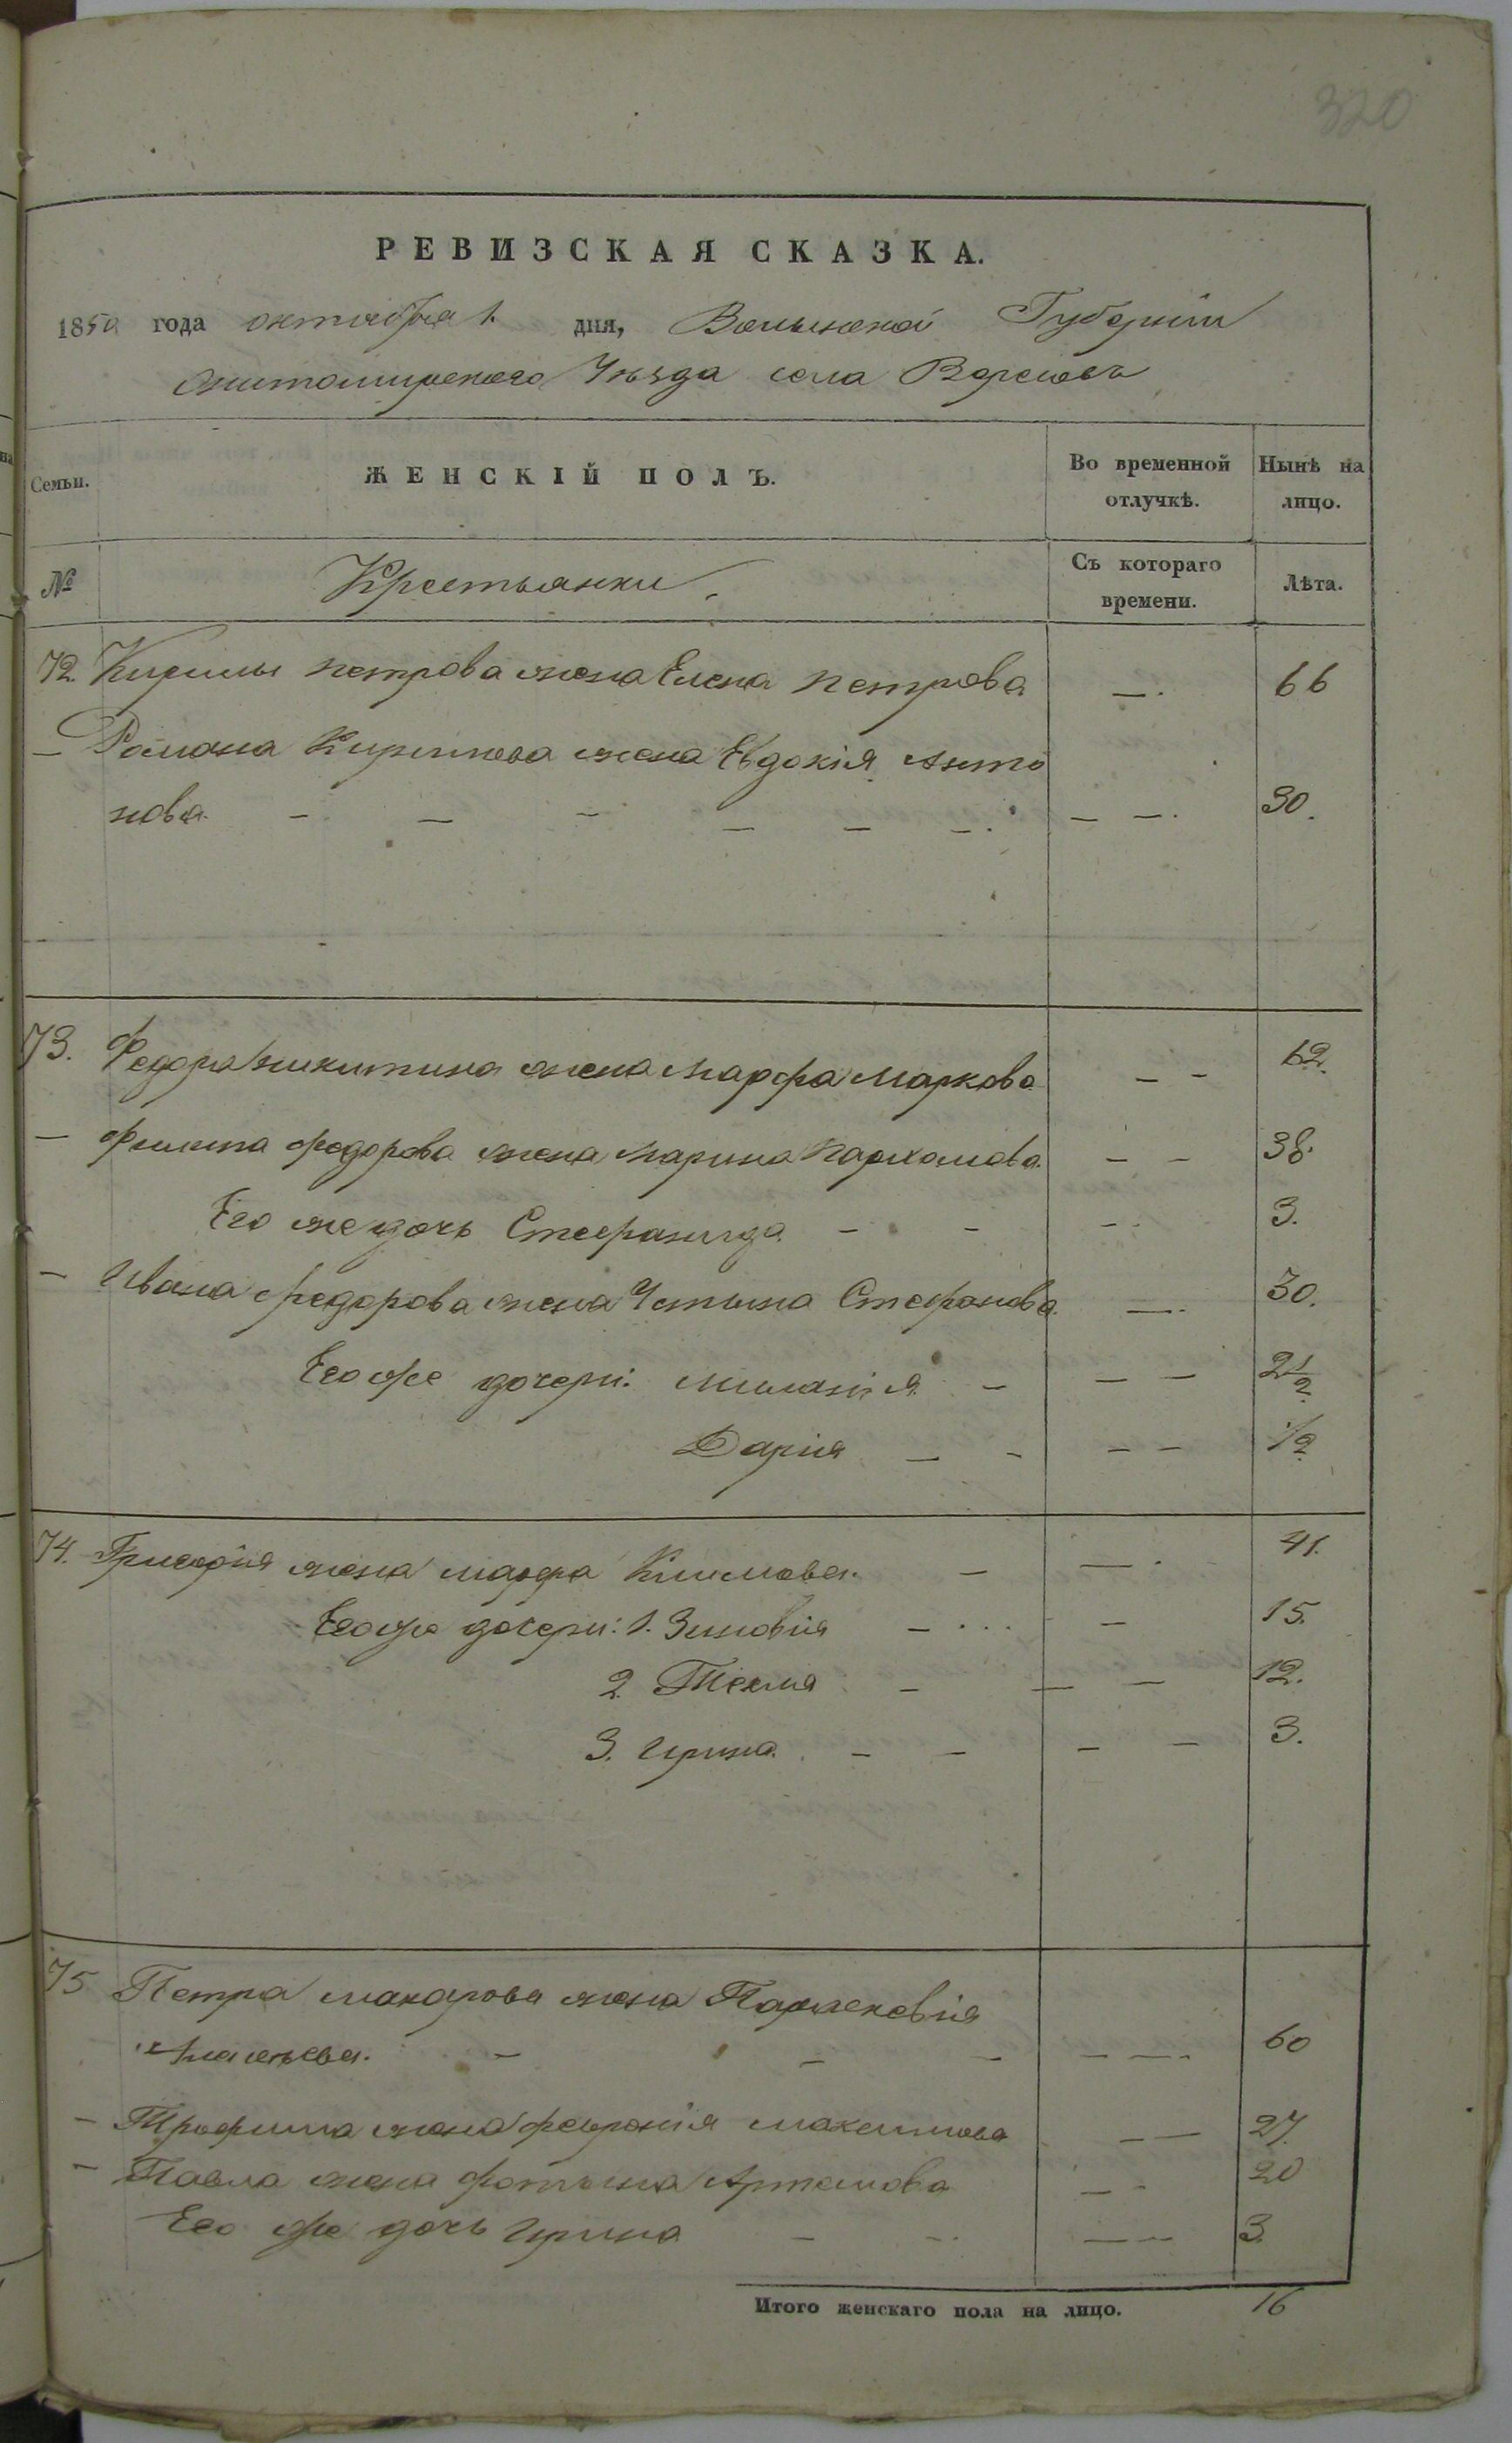 320
РЕВИЗСКАЯ СКАЗКА.
1850 года октября 1. дня, Волынской Губернии
Житомирского Уѣзда села Ворсовъ
Семьи. ЖЕНСКІЙ ПОЛЪ. Во временной отлучкѣ. Нынѣ на лицо.
№ Крестьянки. Съ котораго времени. Лѣта.
72. Кирилы Петрова жена Елена Петрова — . 66
— Романа Кирилова жена Евдокія Анто
нова — — — — — — . — — . 30.
73. Федора Никитина жена Марфа Маркова — — 62.
— Филипа Федорова жена Марина Пархомова. — — 38.
Его же дочь Стефанида — — — . 3.
— Ивана Федорова жена Устына Стефанова. — . 30.
Его же дочери: Миланія — — — 2 1/2.
Дарія — — — — 1/2
74. Григорія жена Марфа Климова. — — . 41.
Его же дочери: 1. Зиновія — ... — 15.
2. Текля — — — 12.
3. Ирина. — — — — 3.
75 Петра Макарова жена Параскевія
Власьева. — — — — — . 60
— Трофима жена Февронія Максимова — — 27.
— Павла жена Фотына Артемова — - 20
Его же дочь Ирина — — — — 3.
Итого женскаго пола на лицо. 16